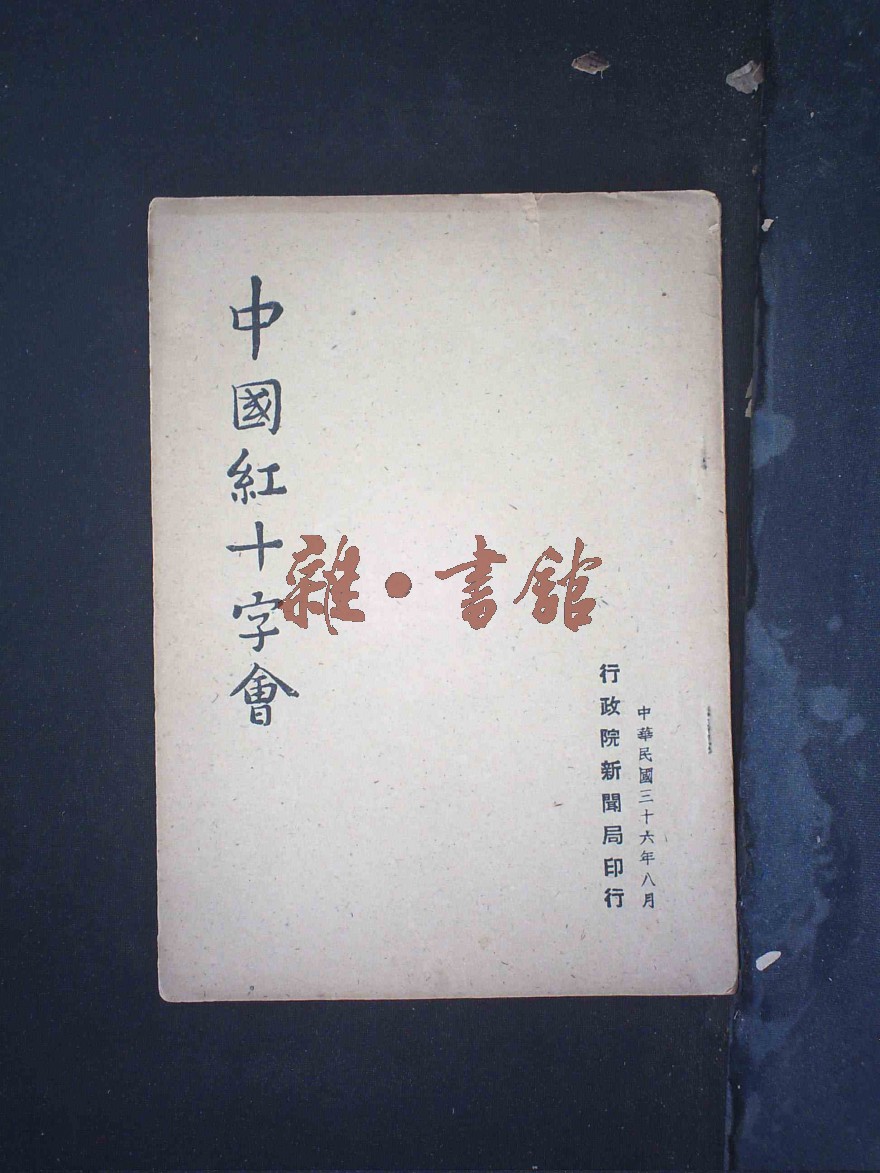 中華民國三十六年八月
行政院新聞局印行
中國紅十字會
雜·書館